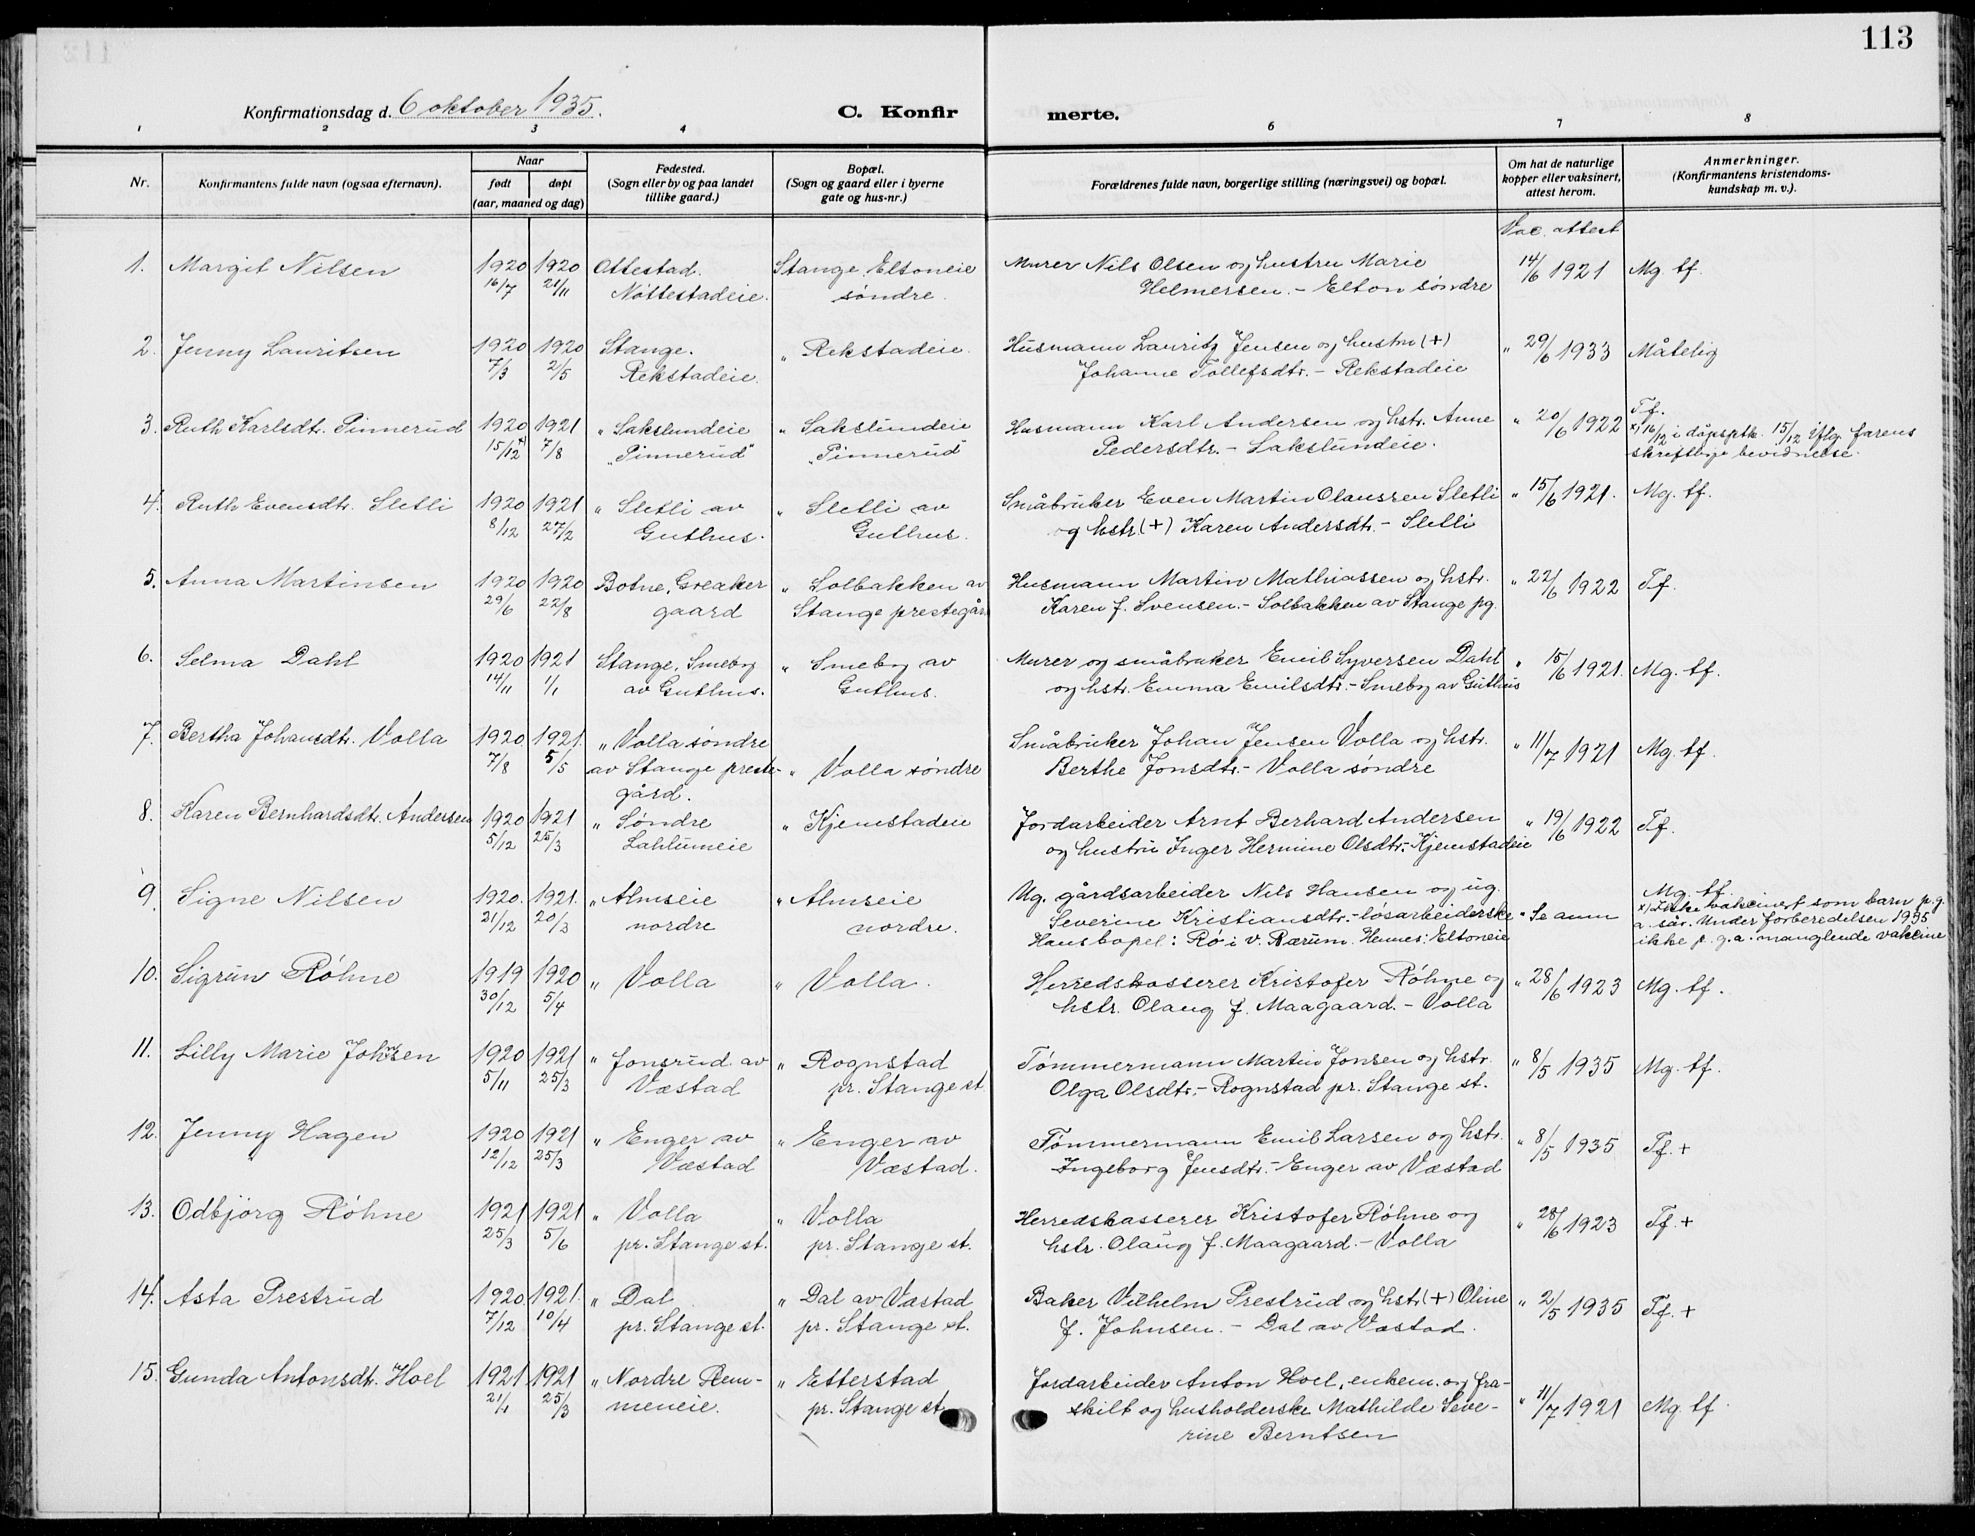 113
Konfirmationsdag d. 6 oktober 1935.
C. Konfirmerte.
1 2 3 4 6 7 8
Nr.
Konfirmantens fulde navn (ogsaa efternavn).
Naar
født
døpt
(aar, maaned og dag)
Fødested.
(Sogn eller by og paa landet
tillike gaard.)
Bopæl.
(Sogn og gaard eller i byerne
gate og hus-nr.)
Forældrenes fulde navn, borgerlige stilling (næringsvei) og bopæl.
Om hat de naturlige
kopper eller vaksinert,
attest herom.
Anmerkninger.
(Konfirmantens kristendoms-
kundskap m. v.).
Vac. attest
1. Margit Nilsen 1920 1920 Ottestad. Stange, Eltoneie Murer Nils Olsen og hustru Marie 14/6 1921 Mg. tf.
16/7 21/11 Nøttestadeie. søndre. Helmersen. - Elton søndre
2. Jenny Lauritsen 1920 1920 Stange. " Rekstadeie. Husmann Lauritz Jensen og hustru (+) " 29/6 1933 Måtelig
7/3 2/5 Rekstadeie. Johanne Tollefsdtr. - Rekstadeie
3. Ruth Karlsdtr. Pinnerud 1920 1921 " Sakslundeie " Sakslundeie Husmann Karl Andersen og hstr. Anne " 20/6 1922 Tf.
15/12 x) 7/8 "Pinnerud" "Pinnerud" Pedersdtr. - Sakslundeie. x) 16/12 i dåpsptk. 15/12 iflg. farens
skriftlige bevidnelse.
4. Ruth Evensdtr. Sletli 1920 1921 " Sletli av " Sletli av Småbruker Even Martin Olaussen Sletli " 15/6 1921. Mg. tf.
8/12 27/2 Guthus. Guthus. og hstr. (+) Karen Andersdtr. - Sletli
5. Anna Martinsen 1920 1920 Botne, Greaker " Solbakken av Husmann Martin Mathiassen og hstr. " 22/6 1922 Tf.
29/6 22/8 gaard Stange prestegård Karen f. Svensen. - Solbakken av Stange pg.
6. Selma Dahl 1920 1921 Stange, Smeby " Smeby av Murer og småbruker Emil Syversen Dahl " 15/6 1921. Mg. tf.
14/11 1/1 av Guthus. Guthus. og hstr. Emma Emilsdtr. - Smeby av Guthus
7. Bertha Johansdtr. Volla 1920 1921. " Volla søndre Småbruker Johan Jensen Volla og hstr. " 11/7 1921 Mg. tf.
7/8 5/5 av Stange preste- " Volla søndre Berthe Jonsdtr. - Volla søndre
gård.
8. Karen Bernhardsdtr. Andersen 1920 1921 " Søndre " Kjemstadeie Jordarbeider Arnt Berhard Andersen " 19/6 1922 Tf.
5/12 25/3 Lahlumeie og hustru Inger Hermine Olsdtr. - Kjemstadeie
9. Signe Nilsen 1920. 1921. " Almseie " Almseie Ug. gårdsarbeider Nils Hansen og ug. Mg. tf.
21/12 20/3 nordre nordre. Severine Kristiansdtr. - løsarbeiderske " Se anm x) Ikke vakcinert som barn p.g.
Hans bopel: Rø i v. Bærum. Hennes: Eltoneie a. sår. Under forberedelsen 1935
ikke p.g.a. manglende vakcine
10. Sigrun Røhne 1919 1920 " Volla " Volla. Herredskasserer Kristofer Røhne og " 28/6 1923 Mg. tf.
30/12 5/4 hstr. Olaug f. Maagaard. - Volla
11. Lilly Marie Johnsen 1920 1921 " Jonsrud av " Rognstad Tømmermann Martin Jonsen og hstr. " 8/5 1935 Mg. tf.
5/11 25/3 Væstad pr. Stange st. Olga Olsdtr. - Rognstad pr. Stange st.
12. Jenny Hagen 1920 1921 " Enger av " Enger av Tømmermann Emil Larsen og hstr. " 8/5 1935 Tf. +
12/12 25/3 Væstad Væstad. Ingeborg Jensdtr. - Enger av Væstad
13. Odbjørg Røhne 1921 1921 " Volla " Volla Herredskasserer Kristofer Røhne og " 28/6 1923 Tf. +
25/3 5/6 pr. Stange st. pr. Stange st. hstr. Olaug f. Maagaard. - Volla
14. Asta Prestrud 1920 1921. " Dal " Dal av Væstad Baker Vilhelm Prestrud og hstr. (+) Oline " 2/5 1935 Tf. +
7/12 10/4 pr. Stange st. pr. Stange st. f. Johnsen. - Dal av Væstad.
15. Gunda Antonsdt. Hoel 1921 1921 " Nordre Rem- " Etterstad Jordarbeider Anton Hoel, enkem. og fra- " 11/7 1921 Mg. tf.
21/1 25/3 meneie. pr. Stange st. skilt og husholderske Mathilde Seve-
rine Berntsen